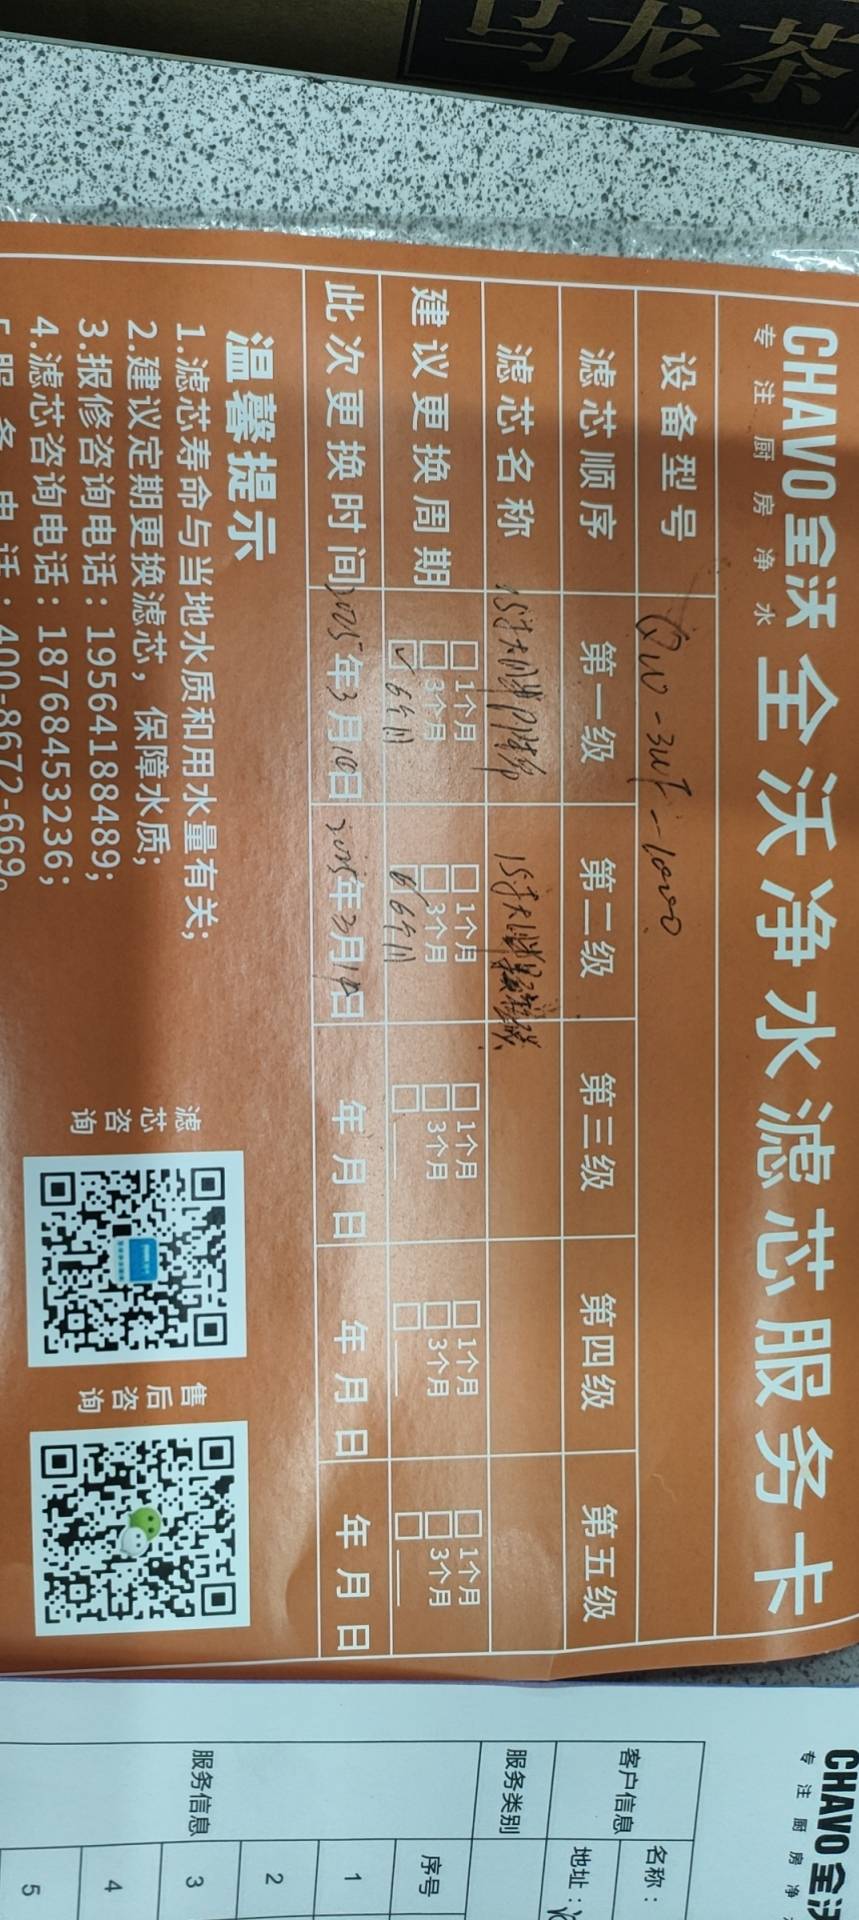 乌龙茶
CHAVO全沃
专注厨房净水
全沃净水滤芯服务卡
设备型号
滤芯顺序 第一级 第二级 第三级 第四级 第五级
滤芯名称
建议更换周期 1个月 3个月 6个月 1个月 3个月 6个月 1个月 3个月 1个月 3个月 1个月 3个月
此次更换时间 2025年3月10日 2025年3月10日 年月日 年月日 年月日
温馨提示
1.滤芯寿命与当地水质和用水量有关;
2.建议定期更换滤芯，保障水质;
3.报修咨询电话：19564188489;
4.滤芯咨询电话：18768453236;
5.服务电话：400-8672-669。
滤芯咨询
售后咨询
CHAVO全沃
专注厨房净
客户信息 名称：
地址：
服务类别
服务信息 序号
1
2
3
4
5